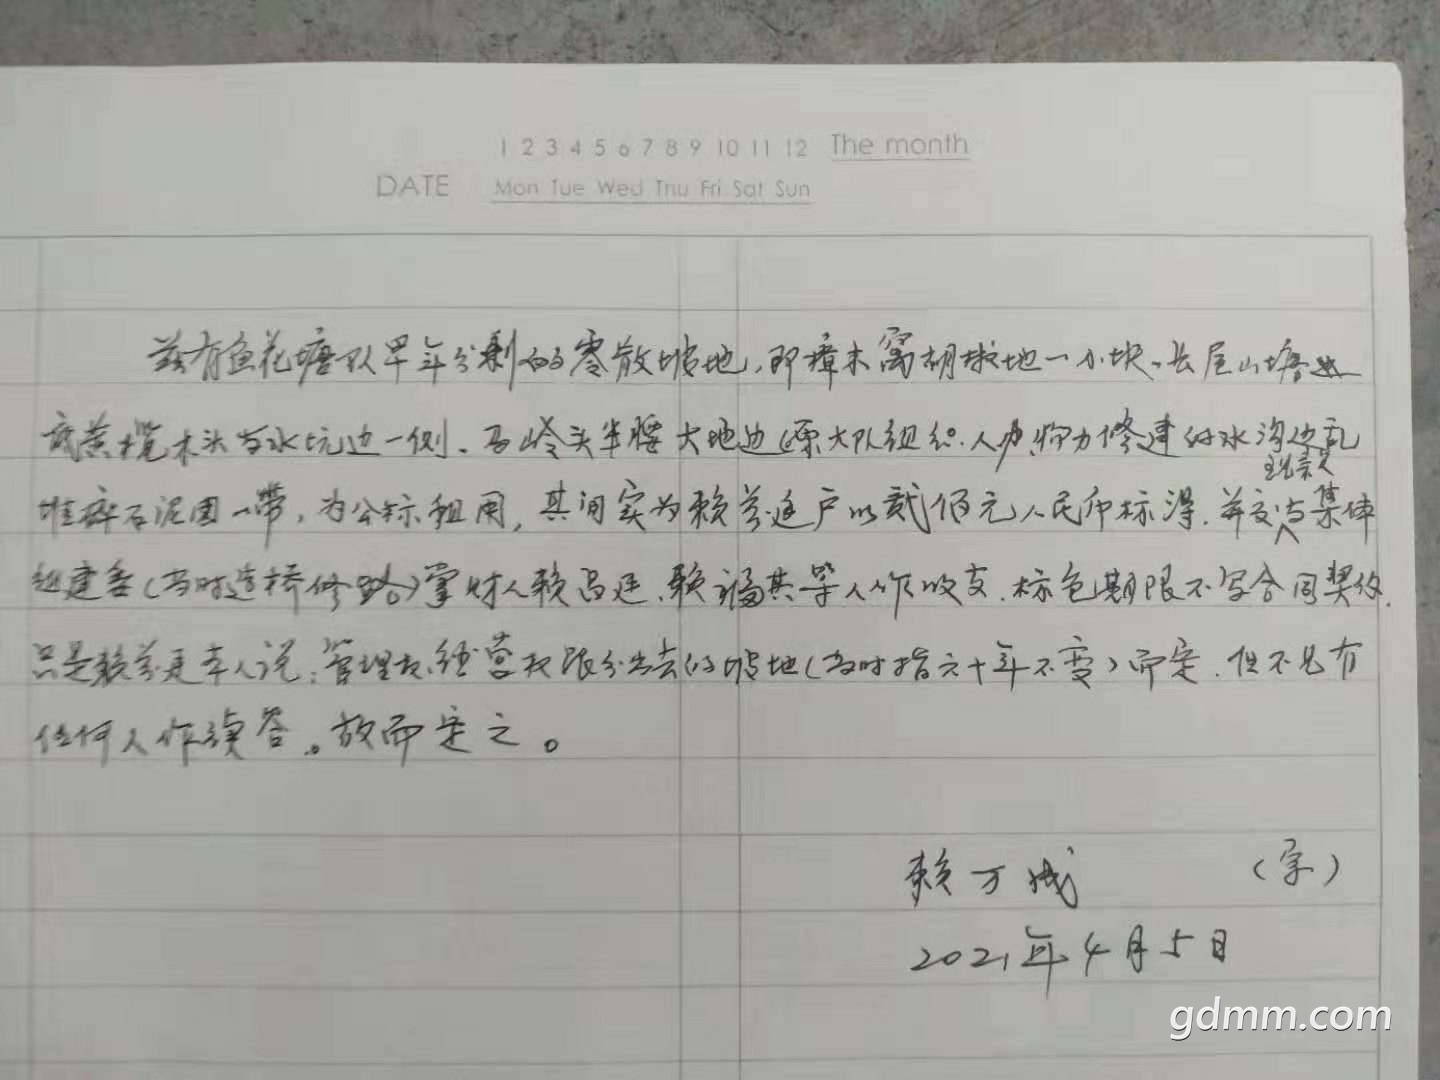 1 2 3 4 5 6 7 8 9 10 11 12 The month
DATE Mon Tue Wed Thu Fri Sat Sun
兹有鱼花塘队早年分剩的零散坡地，即樟木窝胡椒地一小块、长尾山塘
底黄榄木头与水坑边一侧、马岭头半腰大地边(原大队组织人力修建的水沟边乱
现亲
堆碎石泥围一带，为公标租用，其间实为赖芬廷户以贰佰元人民币标得，并交与集体
组建委(当时造桥修路)掌财人赖昌廷、赖福其等人作收支，标包期限不写合同契约，
只是赖芬廷本人说：管理权、经营权跟分出去的坡地(当时指六十年不变)而定，但不见有
任何人作读答。故而定之。
赖万成 (字)
2021年4月5日
gdmm.com